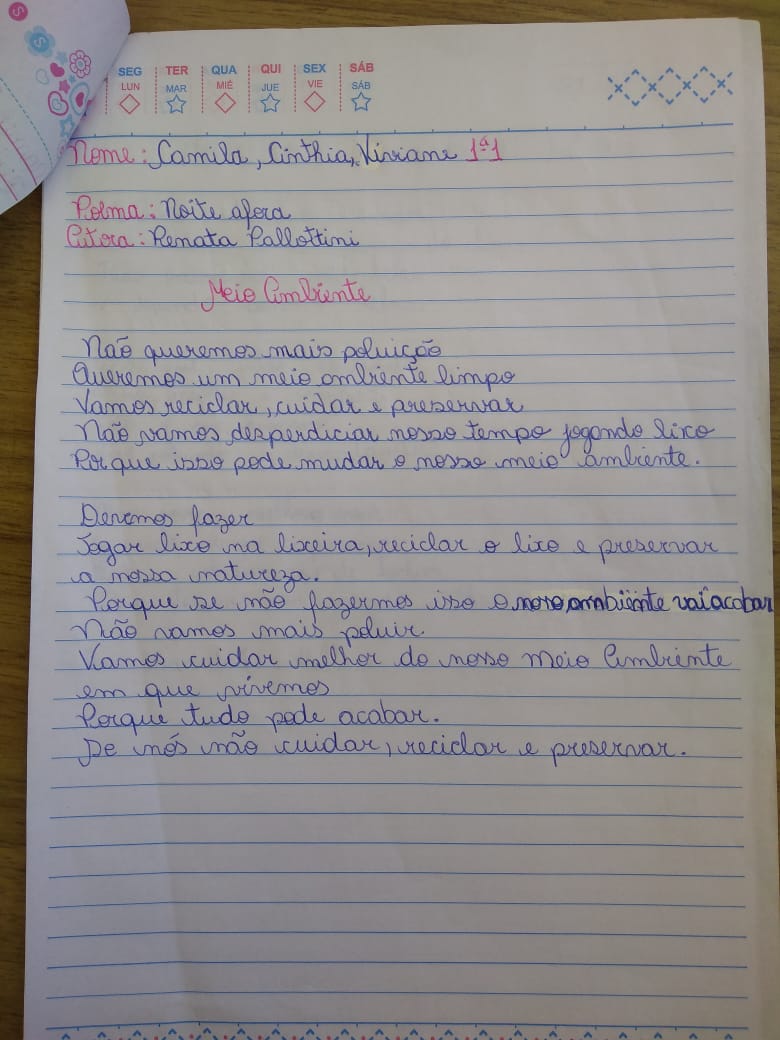 SEG TER QUA QUI SEX SÁB
LUN MAR MIÉ JUE VIE SÁB
Nome: Camila, Cinthia, Viviane 1ª1
Poema: Noite afora
Autora: Renata Pallottini
Meio Ambiente
Não queremos mais poluição
Queremos um meio ambiente limpo
Vamos reciclar, cuidar e preservar
Não vamos desperdiciar nosso tempo jogando lixo
Porque isso pode mudar o nosso meio ambiente.
Devemos fazer
Jogar lixo na lixeira, reciclar o lixo e preservar
a nossa natureza.
Porque se não fazermos isso o noso ambiente vai acabar
Não vamos mais poluir.
Vamos cuidar melhor do nosso Meio Ambiente
em que vivemos
Porque tudo pode acabar.
Se nós não cuidar, reciclar e preservar.